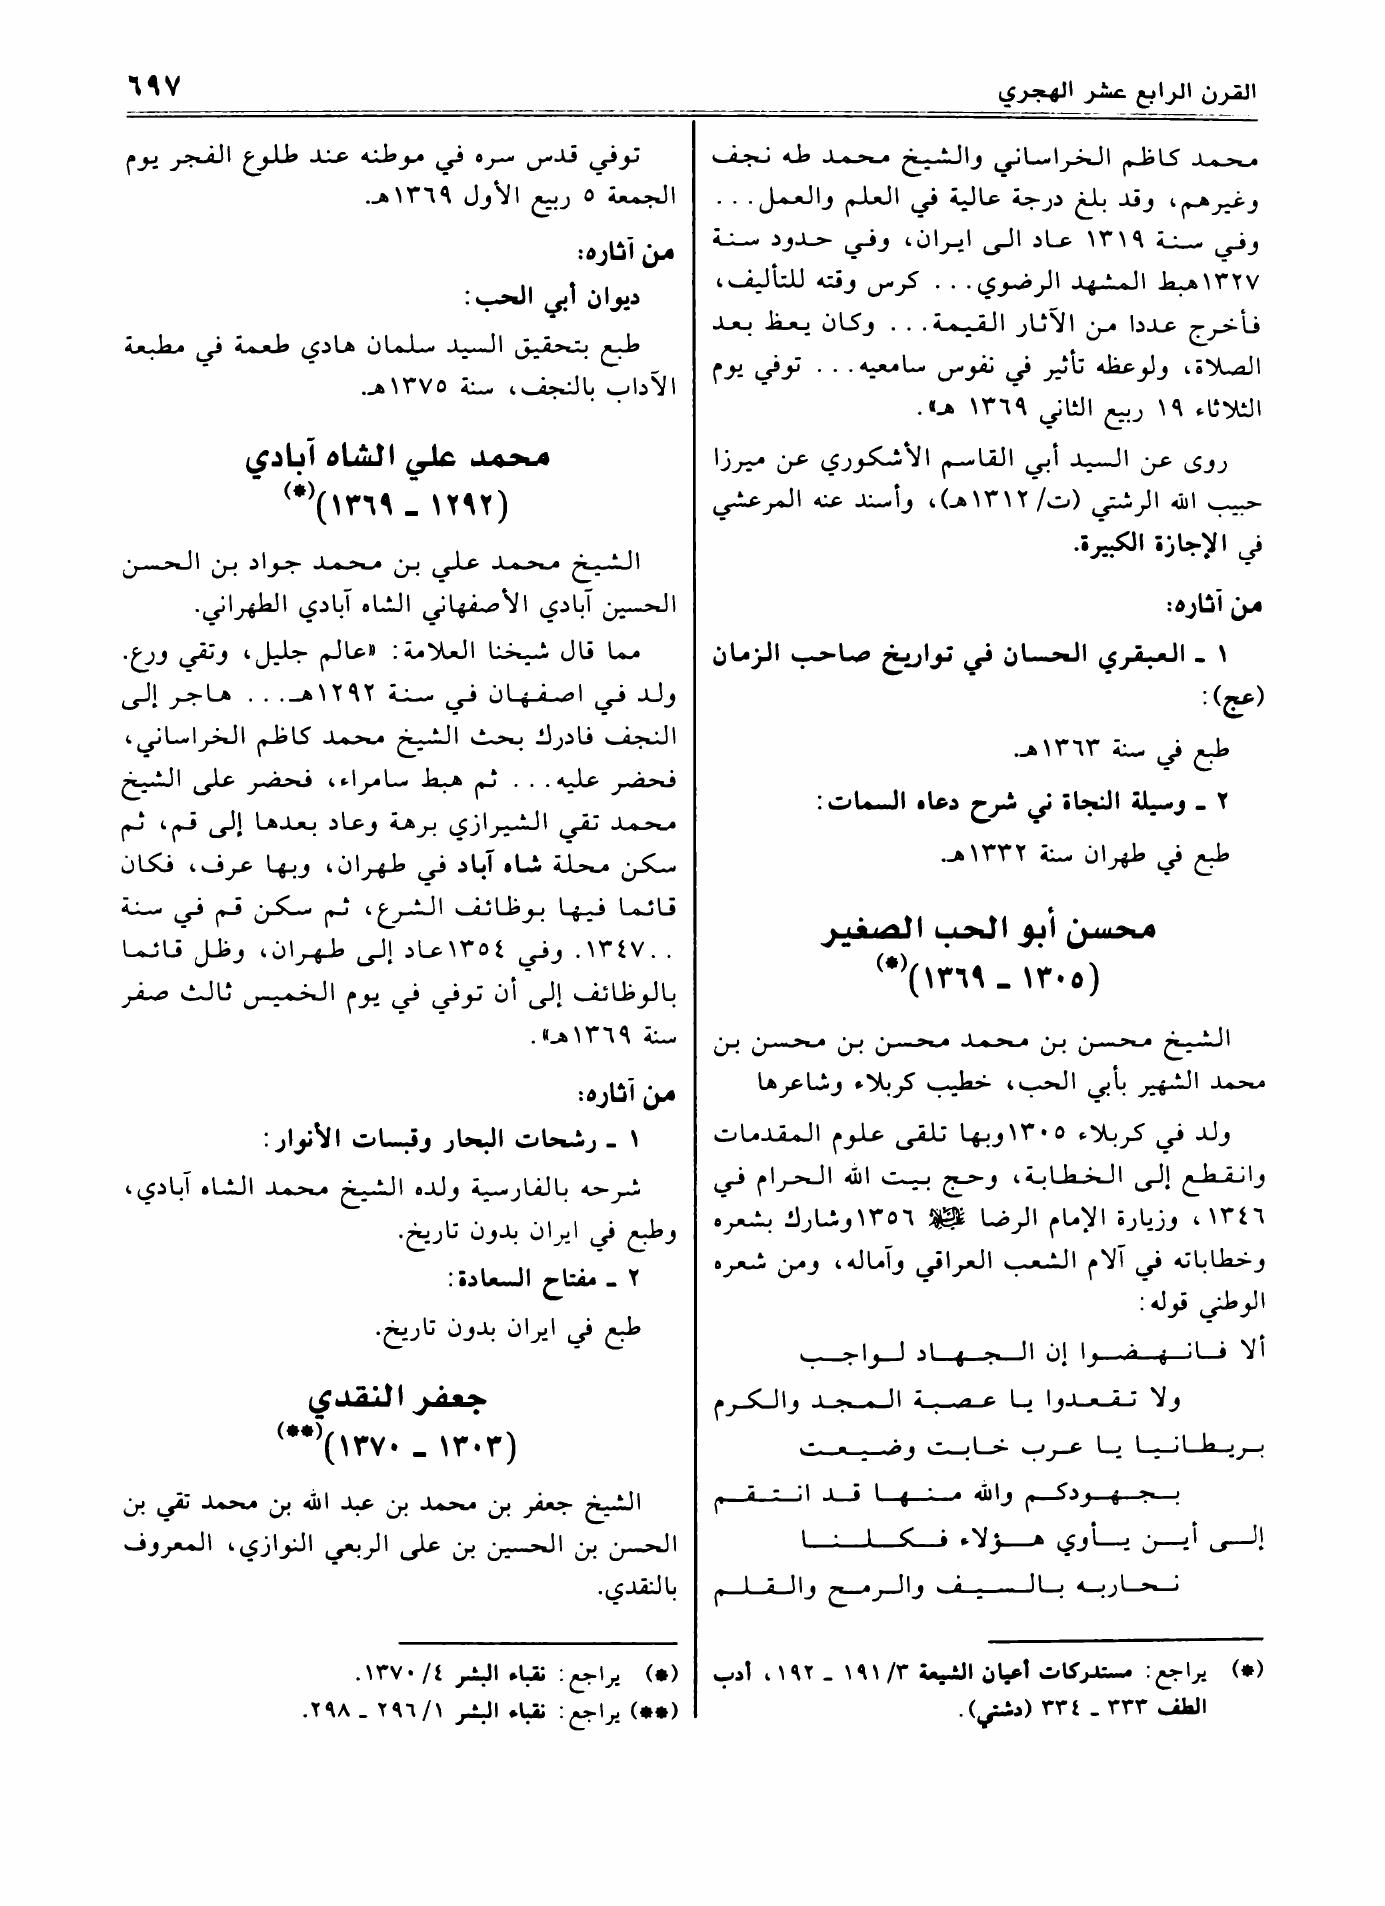 القرن الرابع عشر الهجري
٦٩٧
محمد كاظم الخراساني والشيخ محمد طه نجف
وغيرهم، وقد بلغ درجة عالية في العلم والعمل...
وفي سنة ١٣١٩ عاد الى ايران، وفي حدود سنة
١٣٢٧هبط المشهد الرضوي... كرس وقته للتأليف،
فأخرج عددا من الآثار القيمة... وكان يعظ بعد
الصلاة، ولوعظه تأثير في نفوس سامعيه... توفي يوم
الثلاثاء ١٩ ربيع الثاني ١٣٦٩ هـ».
روى عن السيد أبي القاسم الأشكوري عن ميرزا
حبيب الله الرشتي (ت/ ١٣١٢هـ)، وأسند عنه المرعشي
في الإجازة الكبيرة.
من آثاره:
١ ـ العبقري الحسان في تواريخ صاحب الزمان
(عج):
طبع في سنة ١٣٦٣هـ.
٢ ـ وسيلة النجاة ني شرح دعاء السمات:
طبع في طهران سنة ١٣٣٢هـ.
محسن أبو الحب الصغير
(١٣٠٥ ـ ١٣٦٩)(*)
الشيخ محسن بن محمد محسن بن محسن بن
محمد الشهير بأبي الحب، خطيب كربلاء وشاعرها
ولد في كربلاء ١٣٠٥وبها تلقى علوم المقدمات
وانقطع إلى الخطابة، وحج بيت الله الحرام في
١٣٤٦، وزيارة الإمام الرضا ١٣٥٦وشارك بشعره
وخطاباته في آلام الشعب العراقي وآماله، ومن شعره
الوطني قوله:
ألا فانهضوا إن الجهاد لواجب
ولا تقعدوا يا عصبة المجد والكرم
بريطانيا يا عرب خابت وضيعت
بجهودكم والله منها قد انتقم
إلى أين يأوي هؤلاء فكلنا
نحاربه بالسيف والرمح والقلم
(*) يراجع: مستدركات أعيان الشيعة ٣/ ١٩١ ـ ١٩٢، أدب
الطف ٣٣٣ ـ ٣٣٤ (دشتي).
توفي قدس سره في موطنه عند طلوع الفجر يوم
الجمعة ٥ ربيع الأول ١٣٦٩هـ.
من آثاره:
ديوان أبي الحب:
طبع بتحقيق السيد سلمان هادي طعمة في مطبعة
الآداب بالنجف، سنة ١٣٧٥هـ.
محمد علي الشاه آبادي
(١٢٩٢ ـ ١٣٦٩)(*)
الشيخ محمد علي بن محمد جواد بن الحسن
الحسين آبادي الأصفهاني الشاه آبادي الطهراني.
مما قال شيخنا العلامة: «عالم جليل، وتقي ورع.
ولد في اصفهان في سنة ١٢٩٢هـ... هاجر إلى
النجف فادرك بحث الشيخ محمد كاظم الخراساني،
فحضر عليه... ثم هبط سامراء، فحضر على الشيخ
محمد تقي الشيرازي برهة وعاد بعدها إلى قم، ثم
سكن محلة شاه آباد في طهران، وبها عرف، فكان
قائما فيها بوظائف الشرع، ثم سكن قم في سنة
١٣٤٧... وفي ١٣٥٤عاد إلى طهران، وظل قائما
بالوظائف إلى أن توفي في يوم الخميس ثالث صفر
سنة ١٣٦٩هـ».
من آثاره:
١ ـ رشحات البحار وقبسات الأنوار:
شرحه بالفارسية ولده الشيخ محمد الشاه آبادي،
وطبع في ايران بدون تاريخ.
٢ ـ مفتاح السعادة:
طبع في ايران بدون تاريخ.
جعفر النقدي
(١٣٠٣ ـ ١٣٧٠)(**)
الشيخ جعفر بن محمد بن عبد الله بن محمد تقي بن
الحسن بن الحسين بن على الربعي النوازي، المعروف
بالنقدي.
(*) يراجع: نقباء البشر ٤/ ١٣٧٠.
(**) يراجع: نقباء البشر ١/ ٢٩٦ ـ ٢٩٨.